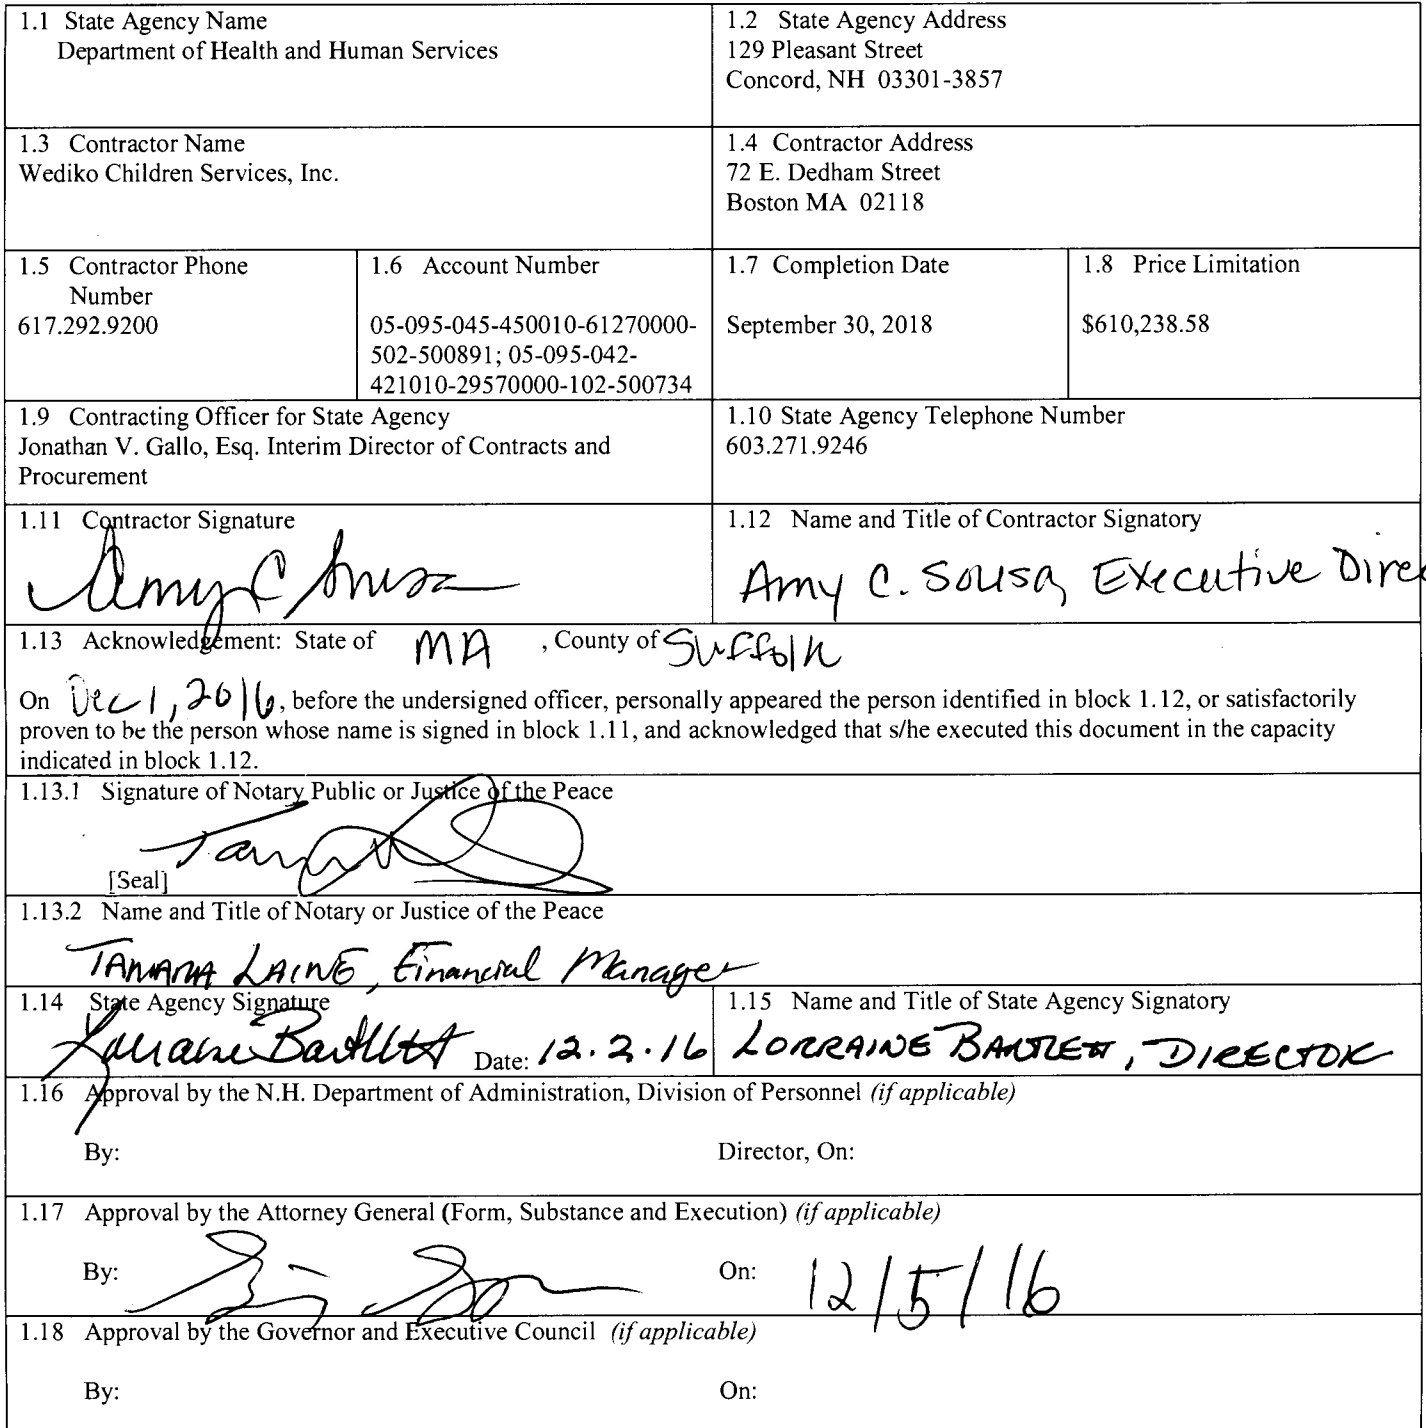 1.1 State Agency Name
Department of Health and Human Services
1.2 State Agency Address
129 Pleasant Street
Concord, NH 03301-3857
1.3 Contractor Name
Wediko Children Services, Inc.
1.4 Contractor Address
72 E. Dedham Street
Boston MA 02118
1.5 Contractor Phone
Number
617.292.9200
1.6 Account Number
05-095-045-450010-61270000-
502-500891; 05-095-042-
421010-29570000-102-500734
1.7 Completion Date
September 30, 2018
1.8 Price Limitation
$610,238.58
1.9 Contracting Officer for State Agency
Jonathan V. Gallo, Esq. Interim Director of Contracts and
Procurement
1.10 State Agency Telephone Number
603.271.9246
1.11 Contractor Signature
Amy C Sousa
1.12 Name and Title of Contractor Signatory
Amy C. Sousa, Executive Direc
1.13 Acknowledgement: State of MA , County of Suffolk
On Dec 1, 2016, before the undersigned officer, personally appeared the person identified in block 1.12, or satisfactorily
proven to be the person whose name is signed in block 1.11, and acknowledged that s/he executed this document in the capacity
indicated in block 1.12.
1.13.1 Signature of Notary Public or Justice of the Peace
[Seal]
1.13.2 Name and Title of Notary or Justice of the Peace
TAMARA LAINE, Financial Manager
1.14 State Agency Signature
Lorraine Bartlett Date: 12.2.16
1.15 Name and Title of State Agency Signatory
LORRAINE BARTLETT, DIRECTOR
1.16 Approval by the N.H. Department of Administration, Division of Personnel (if applicable)
By: Director, On:
1.17 Approval by the Attorney General (Form, Substance and Execution) (if applicable)
By: On: 12/5/16
1.18 Approval by the Governor and Executive Council (if applicable)
By: On: